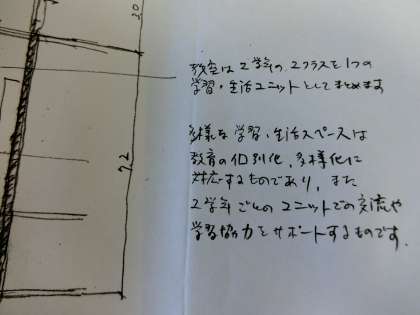 30
72
教室は2学年の2クラスを1つの
学習・生活ユニットとしてまとめます
多様な学習・生活スペースは
教育の個別化、多様化に
対応するものであり、また
2学年ごとのユニットでの交流や
学習協力をサポートするものです.